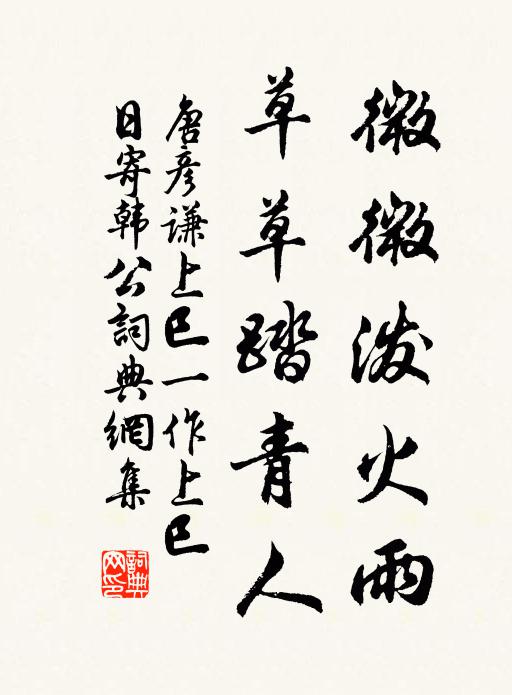 微微潑火雨
草草踏青人
唐彦謙上巳一作上巳
日寄韩公詞典網集
詞典
网印